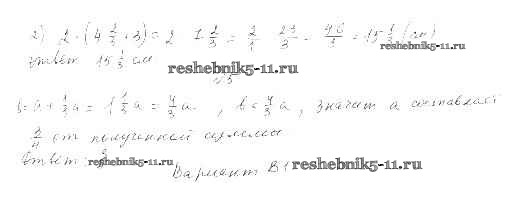 2) 2·(4 2/3 + 3) = 2 · 7 2/3 = 2/1 · 23/3 = 46/3 = 15 1/3 (см)
Ответ 15 1/3 см
reshebnik5-11.ru
√5
b = a + 1/3 a = 1 1/3 a = 4/3 a, b = 4/3 a, значит a составляет
3/4 от полученной суммы
Ответ: 3/4 reshebnik5-11.ru
Вариант В1 reshebnik5-11.ru